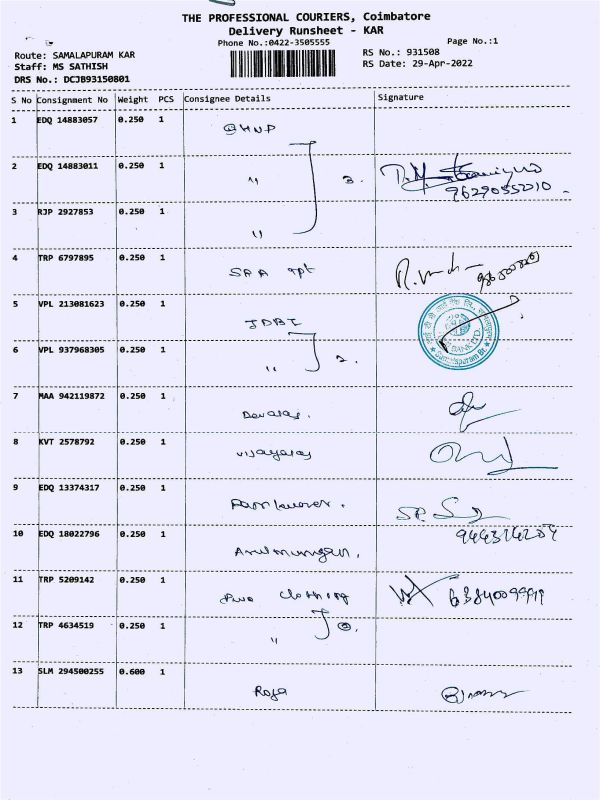 THE PROFESSIONAL COURIERS, Coimbatore
Delivery Runsheet - KAR
Phone No.:0422-3505555
Page No.:1
Route: SAMALAPURAM KAR
Staff: MS SATHISH
DRS No.: DCJB93150801
RS No.: 931508
RS Date: 29-Apr-2022
S No Consignment No Weight PCS Consignee Details Signature
1 EDQ 14883057 0.250 1
2 EDQ 14883011 0.250 1 " 3.
96290552210
3 RJP 2927853 0.250 1 "
4 TRP 6797895 0.250 1
5 VPL 213081623 0.250 1 IDBI
6 VPL 937968305 0.250 1 " 2.
7 MAA 942119872 0.250 1 Devaraj.
8 KVT 2578792 0.250 1 Vijayaraj
9 EDQ 13374317 0.250 1 Ramkumar.
10 EDQ 18022796 0.250 1 Arulmurugan.
11 TRP 5209142 0.250 1 Clothing
12 TRP 4634519 0.250 1 " 2.
13 SLM 294500255 0.600 1 Roja